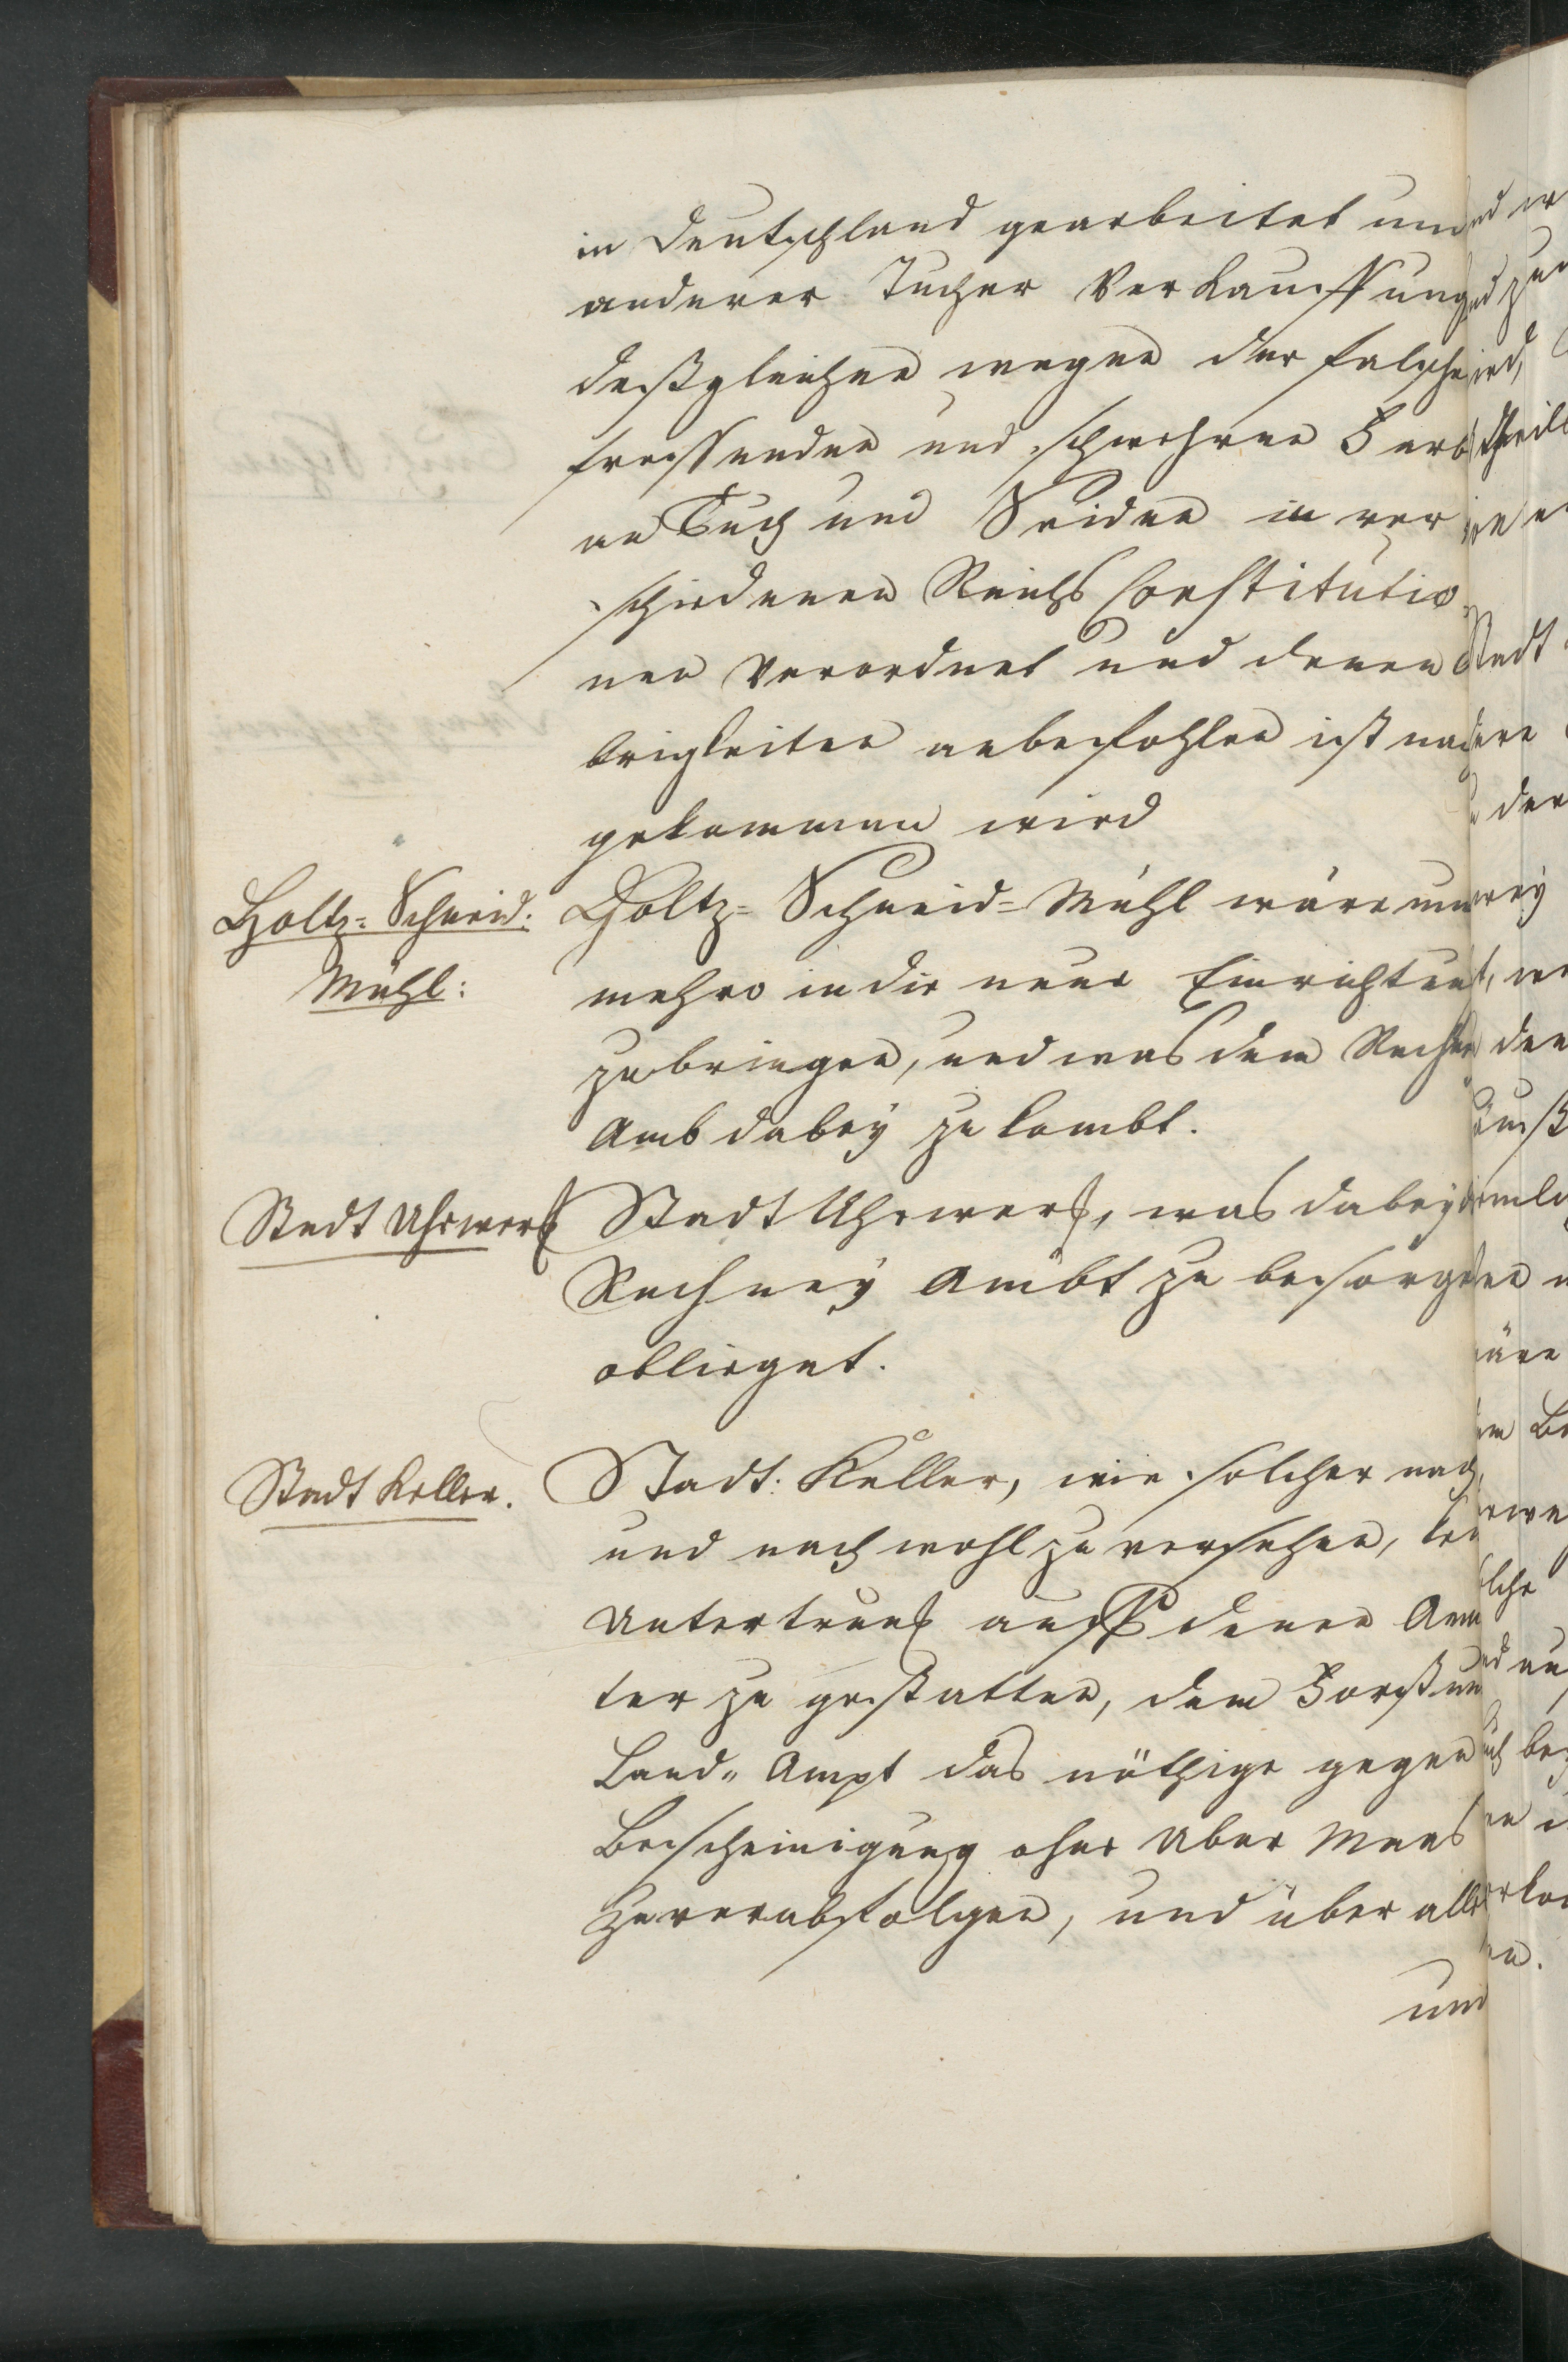 in Deutschland gearbeitet und
anderer Tucher Verkauffung
deßgleichen wegen der falsche
fressenden und schwehren Farb
an Tuch und Seiden in ver
schiedenen Reichs Constitutio
nen Verordnet und denen O
brigkeiten anbefohlen ist nach
gekommen wird
Holtz-Schneid:
Mühl:
Holtz-Schneid-Mühl wäre nun
mehro in die neue Einrichtun
zubringen, und was dem Rechn
Amb dabey zu kombt.
Stadt Uhrwerk
Stadt Uhrwerk, was dabey
Rechney Ambt zu besorge
oblieget.
Stadt Keller.
Stadt: Keller, wie solcher nach
und nach wohl zu versehen, kein
Untertrunk auff denen Aem
ter zu gestatten, dem Forst und
Land- Ampt das nöthige gegen
Bescheinigung ohne Uber Maas
zu verabfolgen, und über alle
und